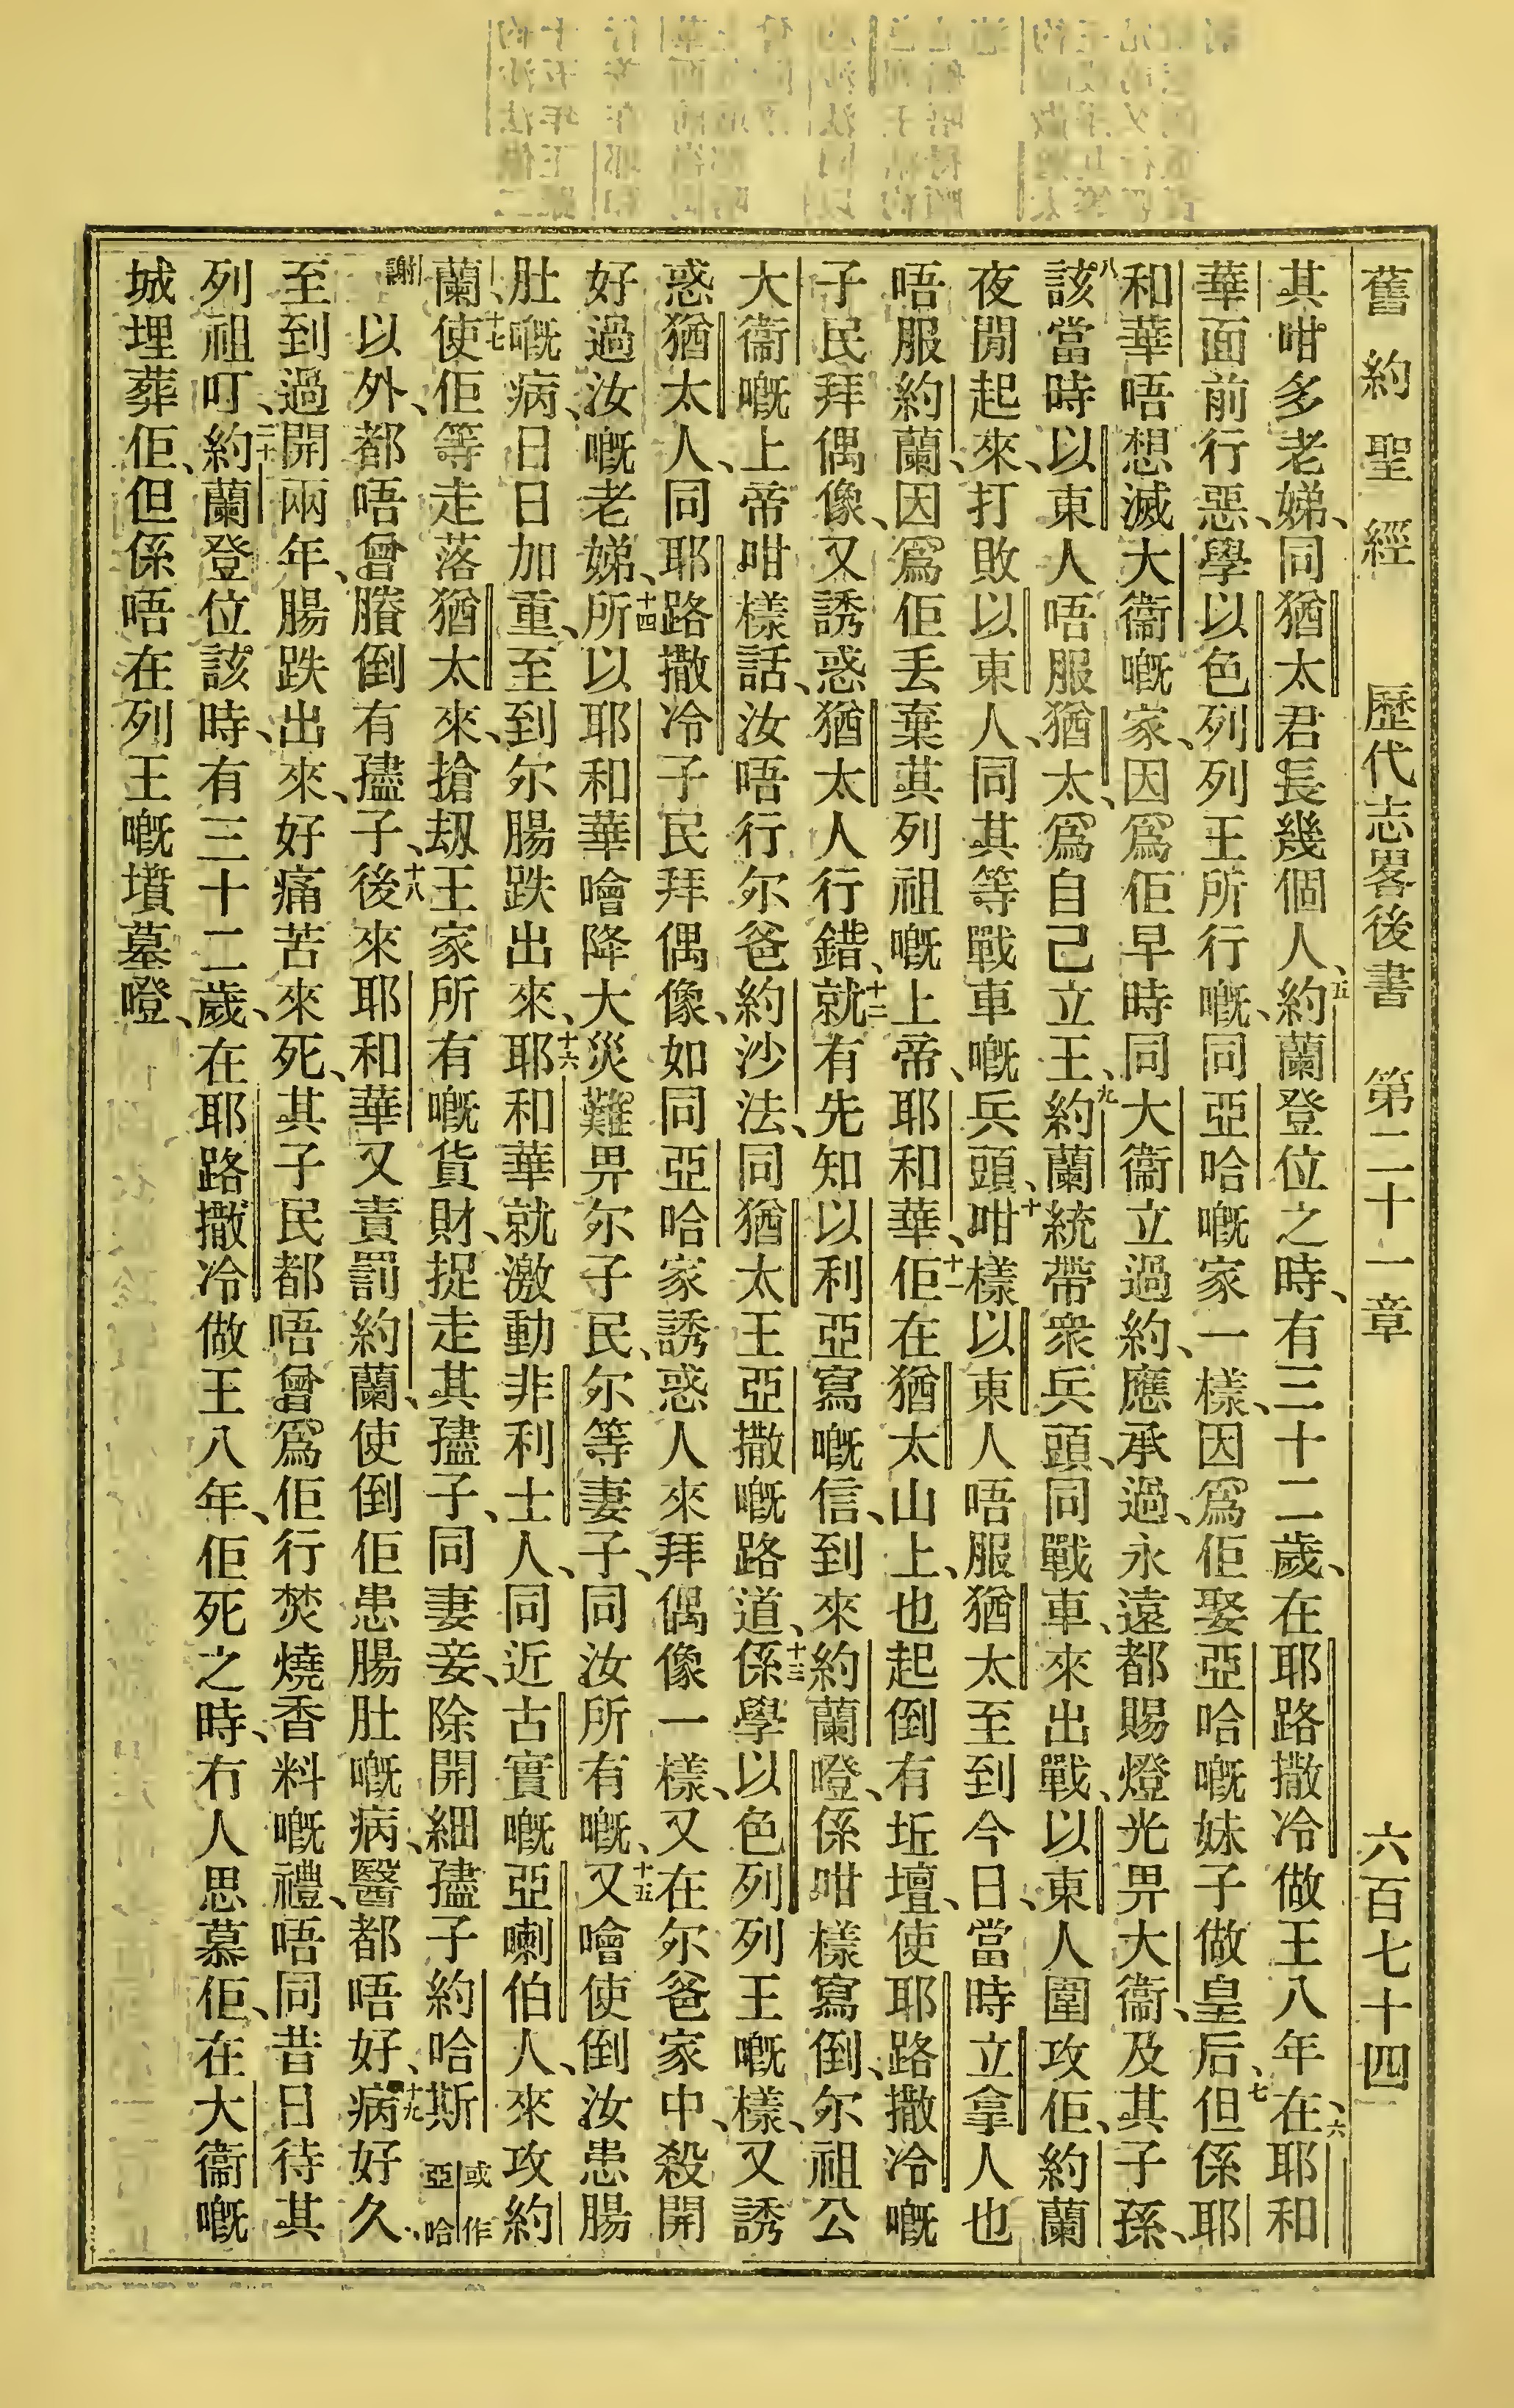 舊約聖經 歷代志畧後書 第二十一章 六百七十四
其咁多老娣、同猶太君長幾個人、五約蘭登位之時、有三十二歲、在耶路撒冷做王八年、六在耶和
華面前行惡、學以色列列王所行嘅、同亞哈嘅家一樣、因爲佢娶亞哈嘅妹子做皇后、七但係耶
和華唔想滅大衞嘅家、因爲佢早時同大衞立過約、應承過、永遠都賜燈光畀大衞、及其子孫、
八該當時以東人唔服猶太、爲自己立王、九約蘭統帶衆兵頭、同戰車、來出戰、以東人圍攻佢、約蘭
夜閒起來、打敗以東人、同其等戰車嘅兵頭、十咁樣以東人唔服猶太至到今日、當時立拿人也
唔服約蘭、因爲佢丟棄其列祖嘅上帝、耶和華、十一佢在猶太山上、也起倒有坵壇、使耶路撒冷嘅
子民拜偶像、又誘惑猶太人行錯、十二就有先知以利亞寫嘅信、到來約蘭嶝、係咁樣寫倒、尔祖公
大衞嘅上帝咁樣話、汝唔行尔爸約沙法、同猶太王亞撒嘅路道、十三係學以色列列王嘅樣、又誘
惑猶太人、同耶路撒冷子民拜偶像、如同亞哈家誘惑人來拜偶像一樣、又在尔爸家中、殺開
好過汝嘅老娣、十四所以耶和華噲降大災難畀尔子民、尔等妻子、同汝所有嘅、十五又噲使倒汝患腸
肚嘅病、日日加重、至到尔腸跌出來、十六耶和華就激動非利士人、同近古實嘅亞喇伯人、來攻約
蘭、十七使佢等走落猶太來、搶刼王家所有嘅貨財、捉走其孻子、同妻妾、除開細孻子約哈斯或作亞哈
謝以外、都唔曾賸倒有孻子、十八後來耶和華又責罰約蘭、使倒佢患腸肚嘅病、醫都唔好、十九病好久、
至到過開兩年、腸跌出來、好痛苦來死、其子民都唔曾爲佢行焚燒香料嘅禮、唔同昔日待其
列祖叮、二十約蘭登位該時、有三十二歲、在耶路撒冷做王八年、佢死之時、冇人思慕佢、在大衞嘅
城埋葬佢、但係唔在列王嘅墳墓嶝、